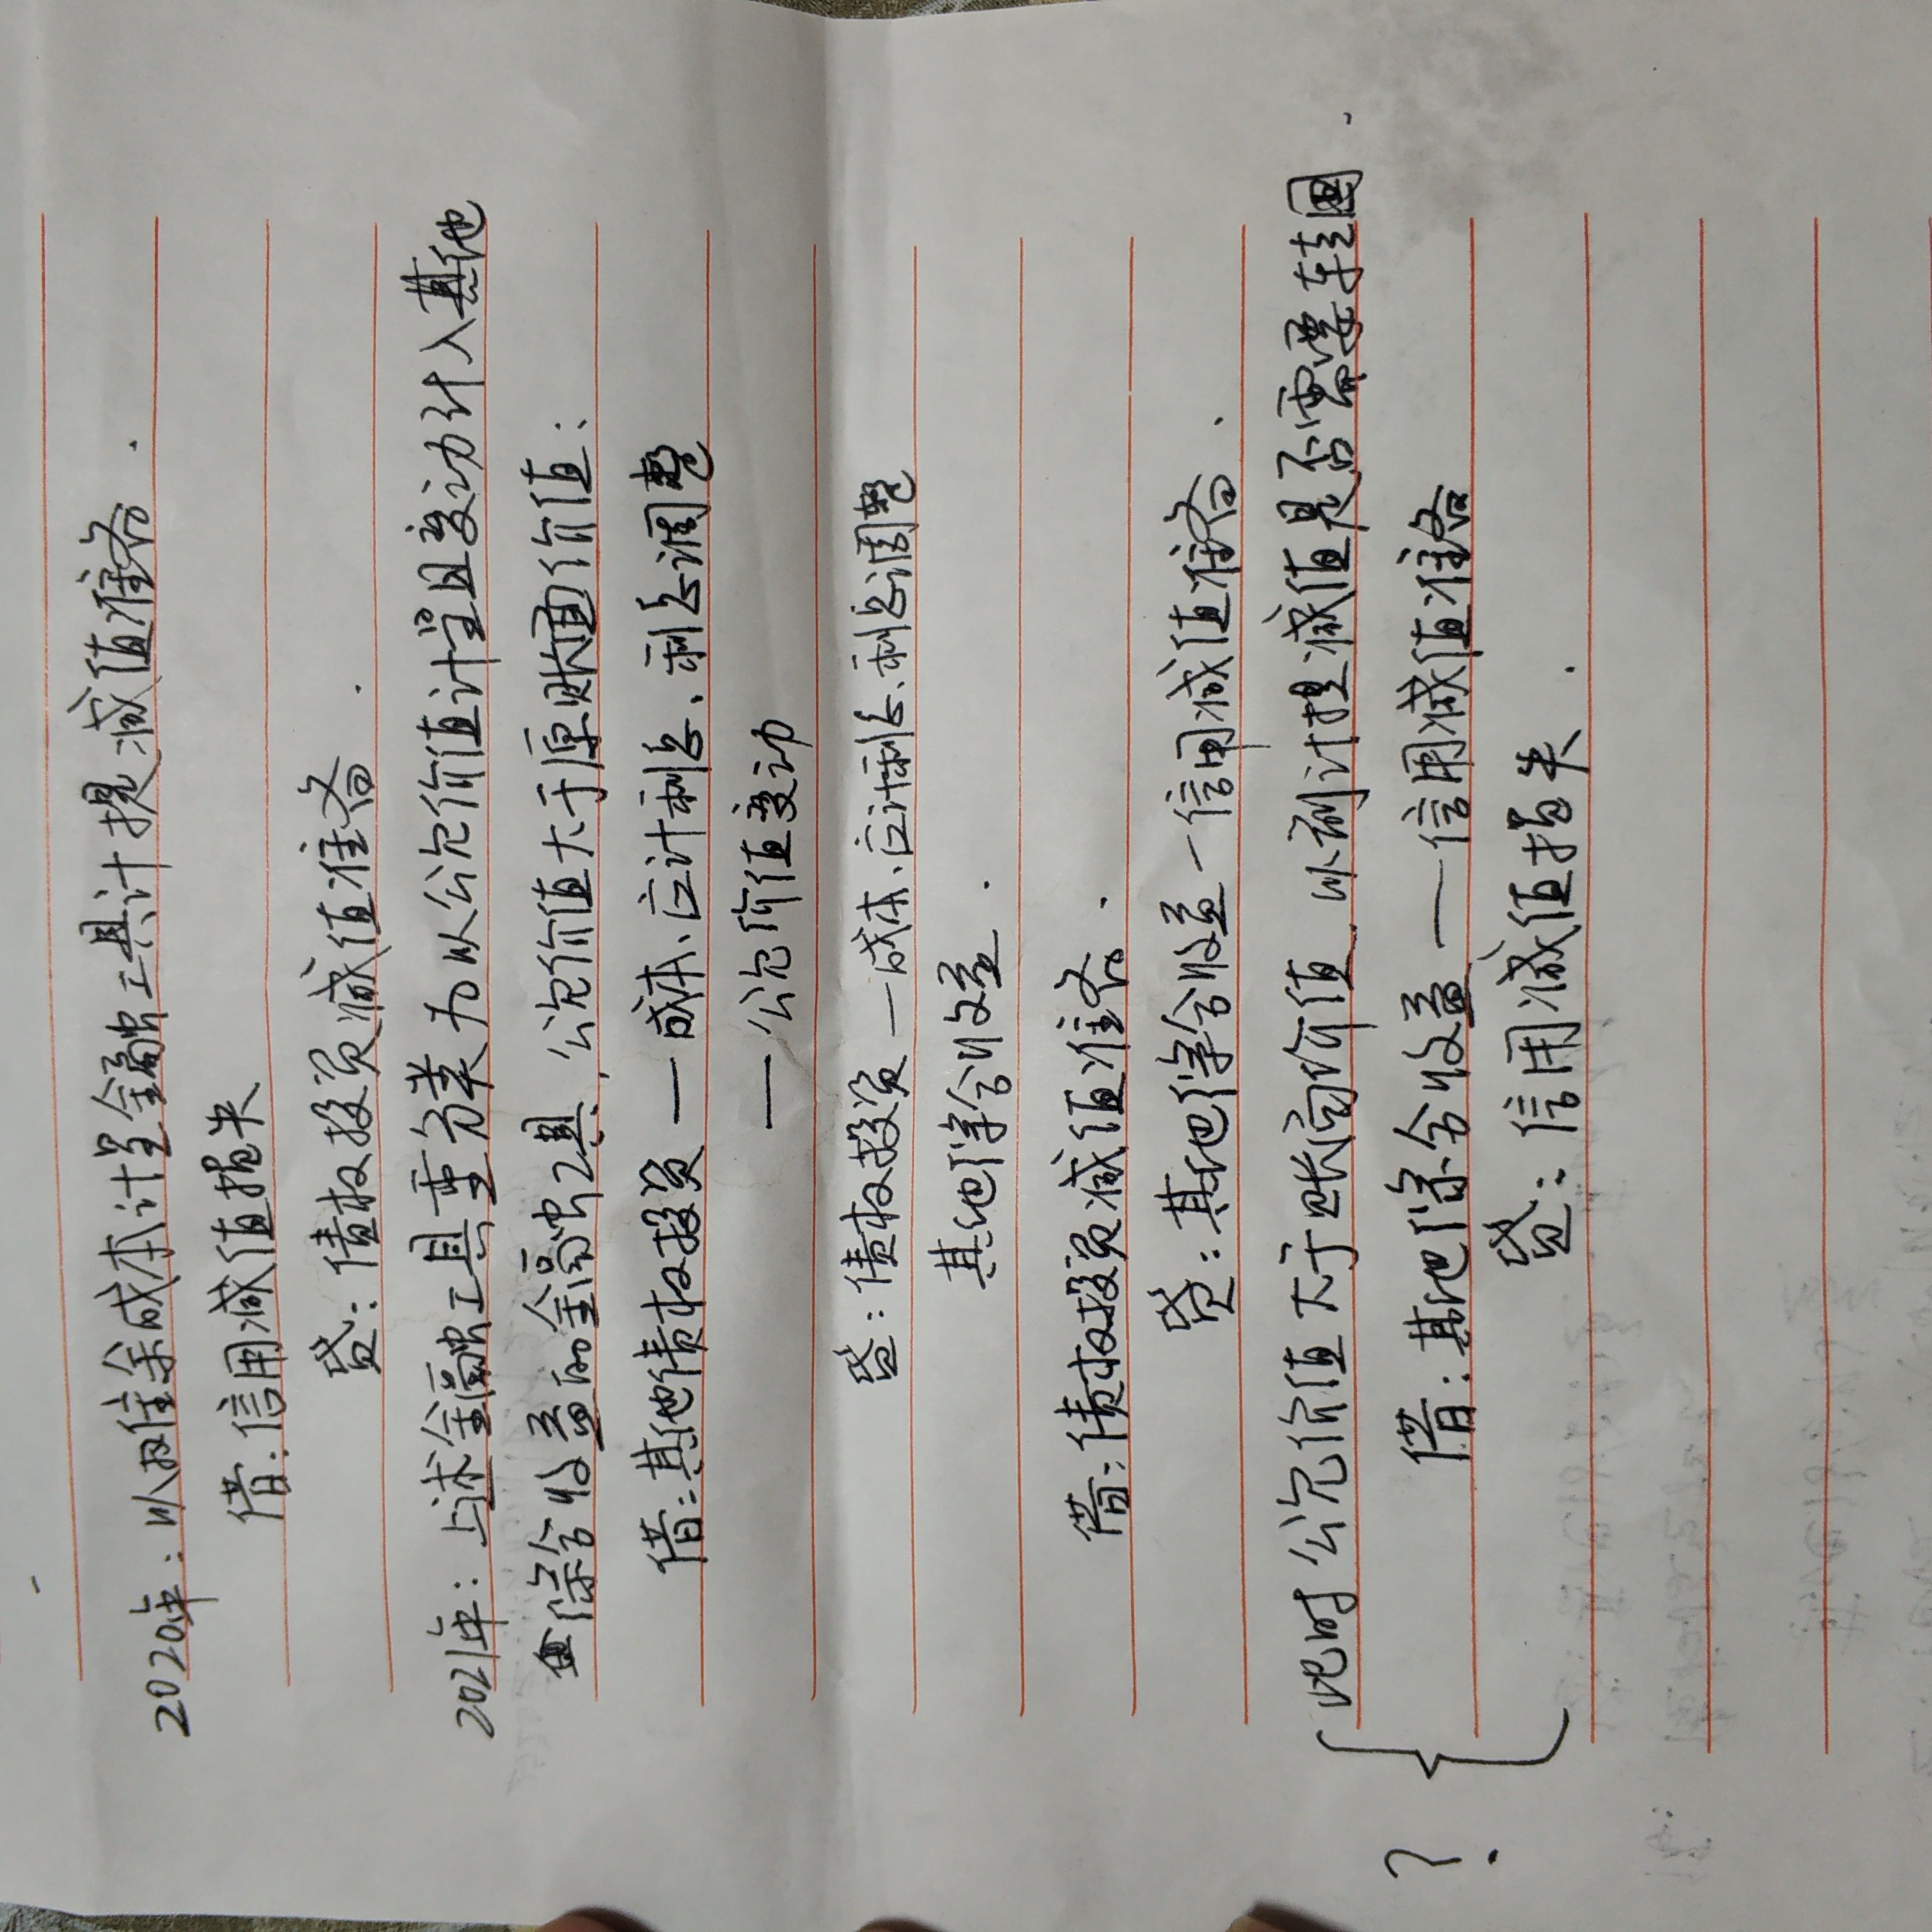 2020年：以摊余成本计量金融工具计提减值准备.
借：信用减值损失
贷：债权投资减值准备.
2021年：上述金融工具重分类为以公允价值计量且变动计入其他
综合收益的金融工具，公允价值大于原账面价值：
借：其他债权投资 — 成本、应计利息、利息调整
— 公允价值变动
贷：债权投资 — 成本、应计利息、利息调整
其他综合收益.
借：债权投资减值准备.
贷：其他综合收益 — 信用减值准备.
此时公允价值大于账面价值，以前计提减值是否需要转回.
借：其他综合收益 — 信用减值准备
贷：信用减值损失.
?